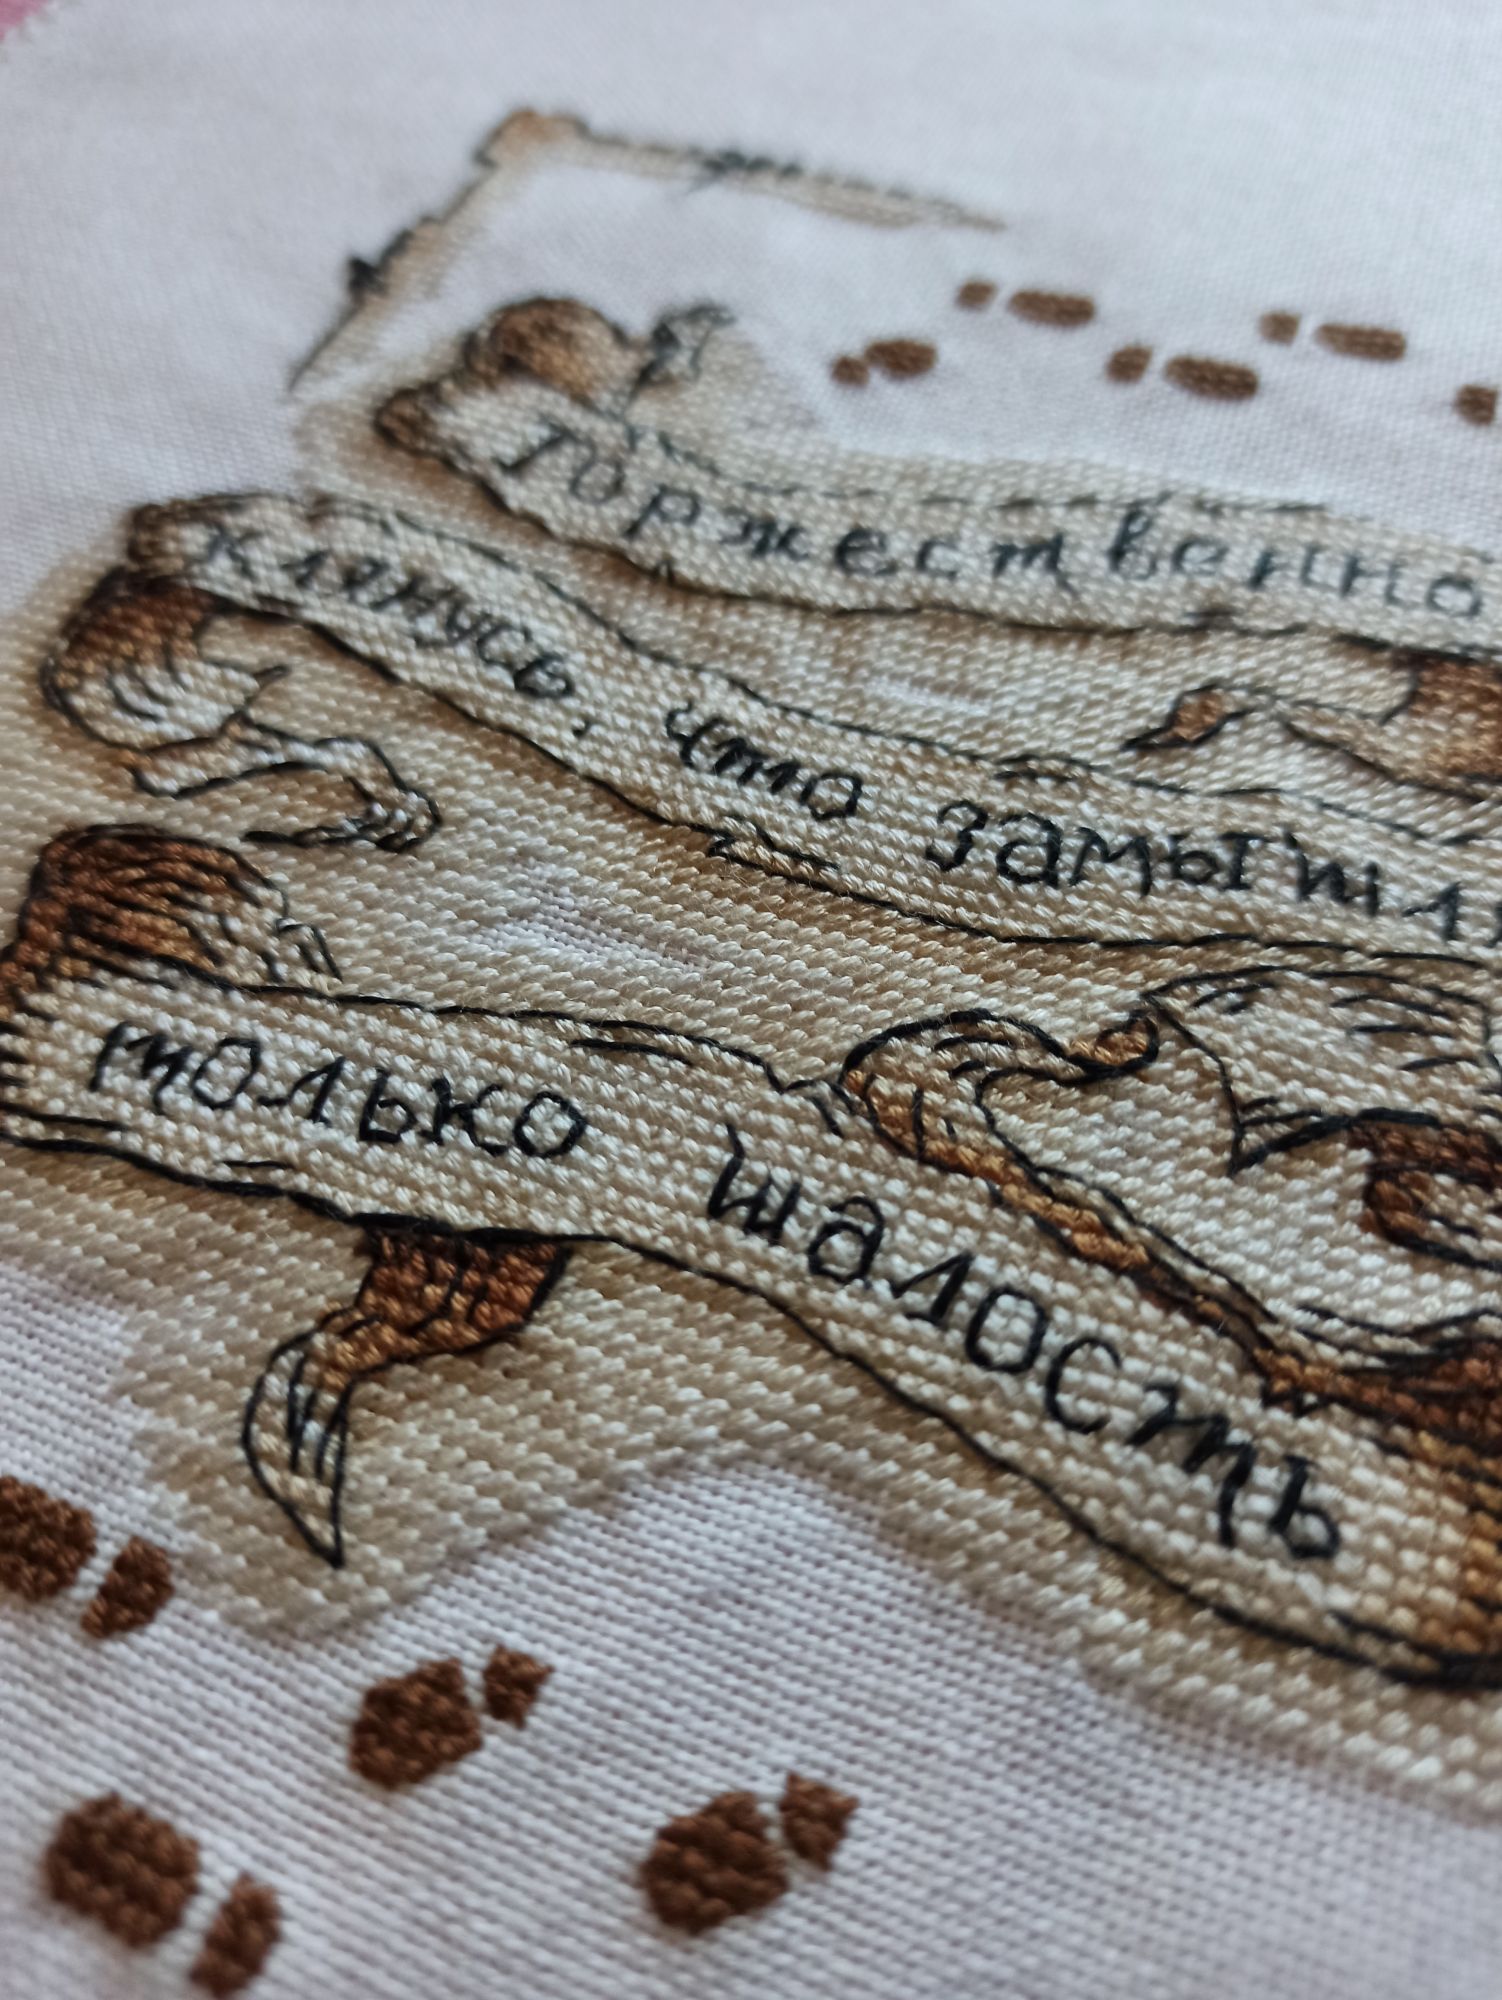 Торжественно
клянусь, что замышл
только шалость